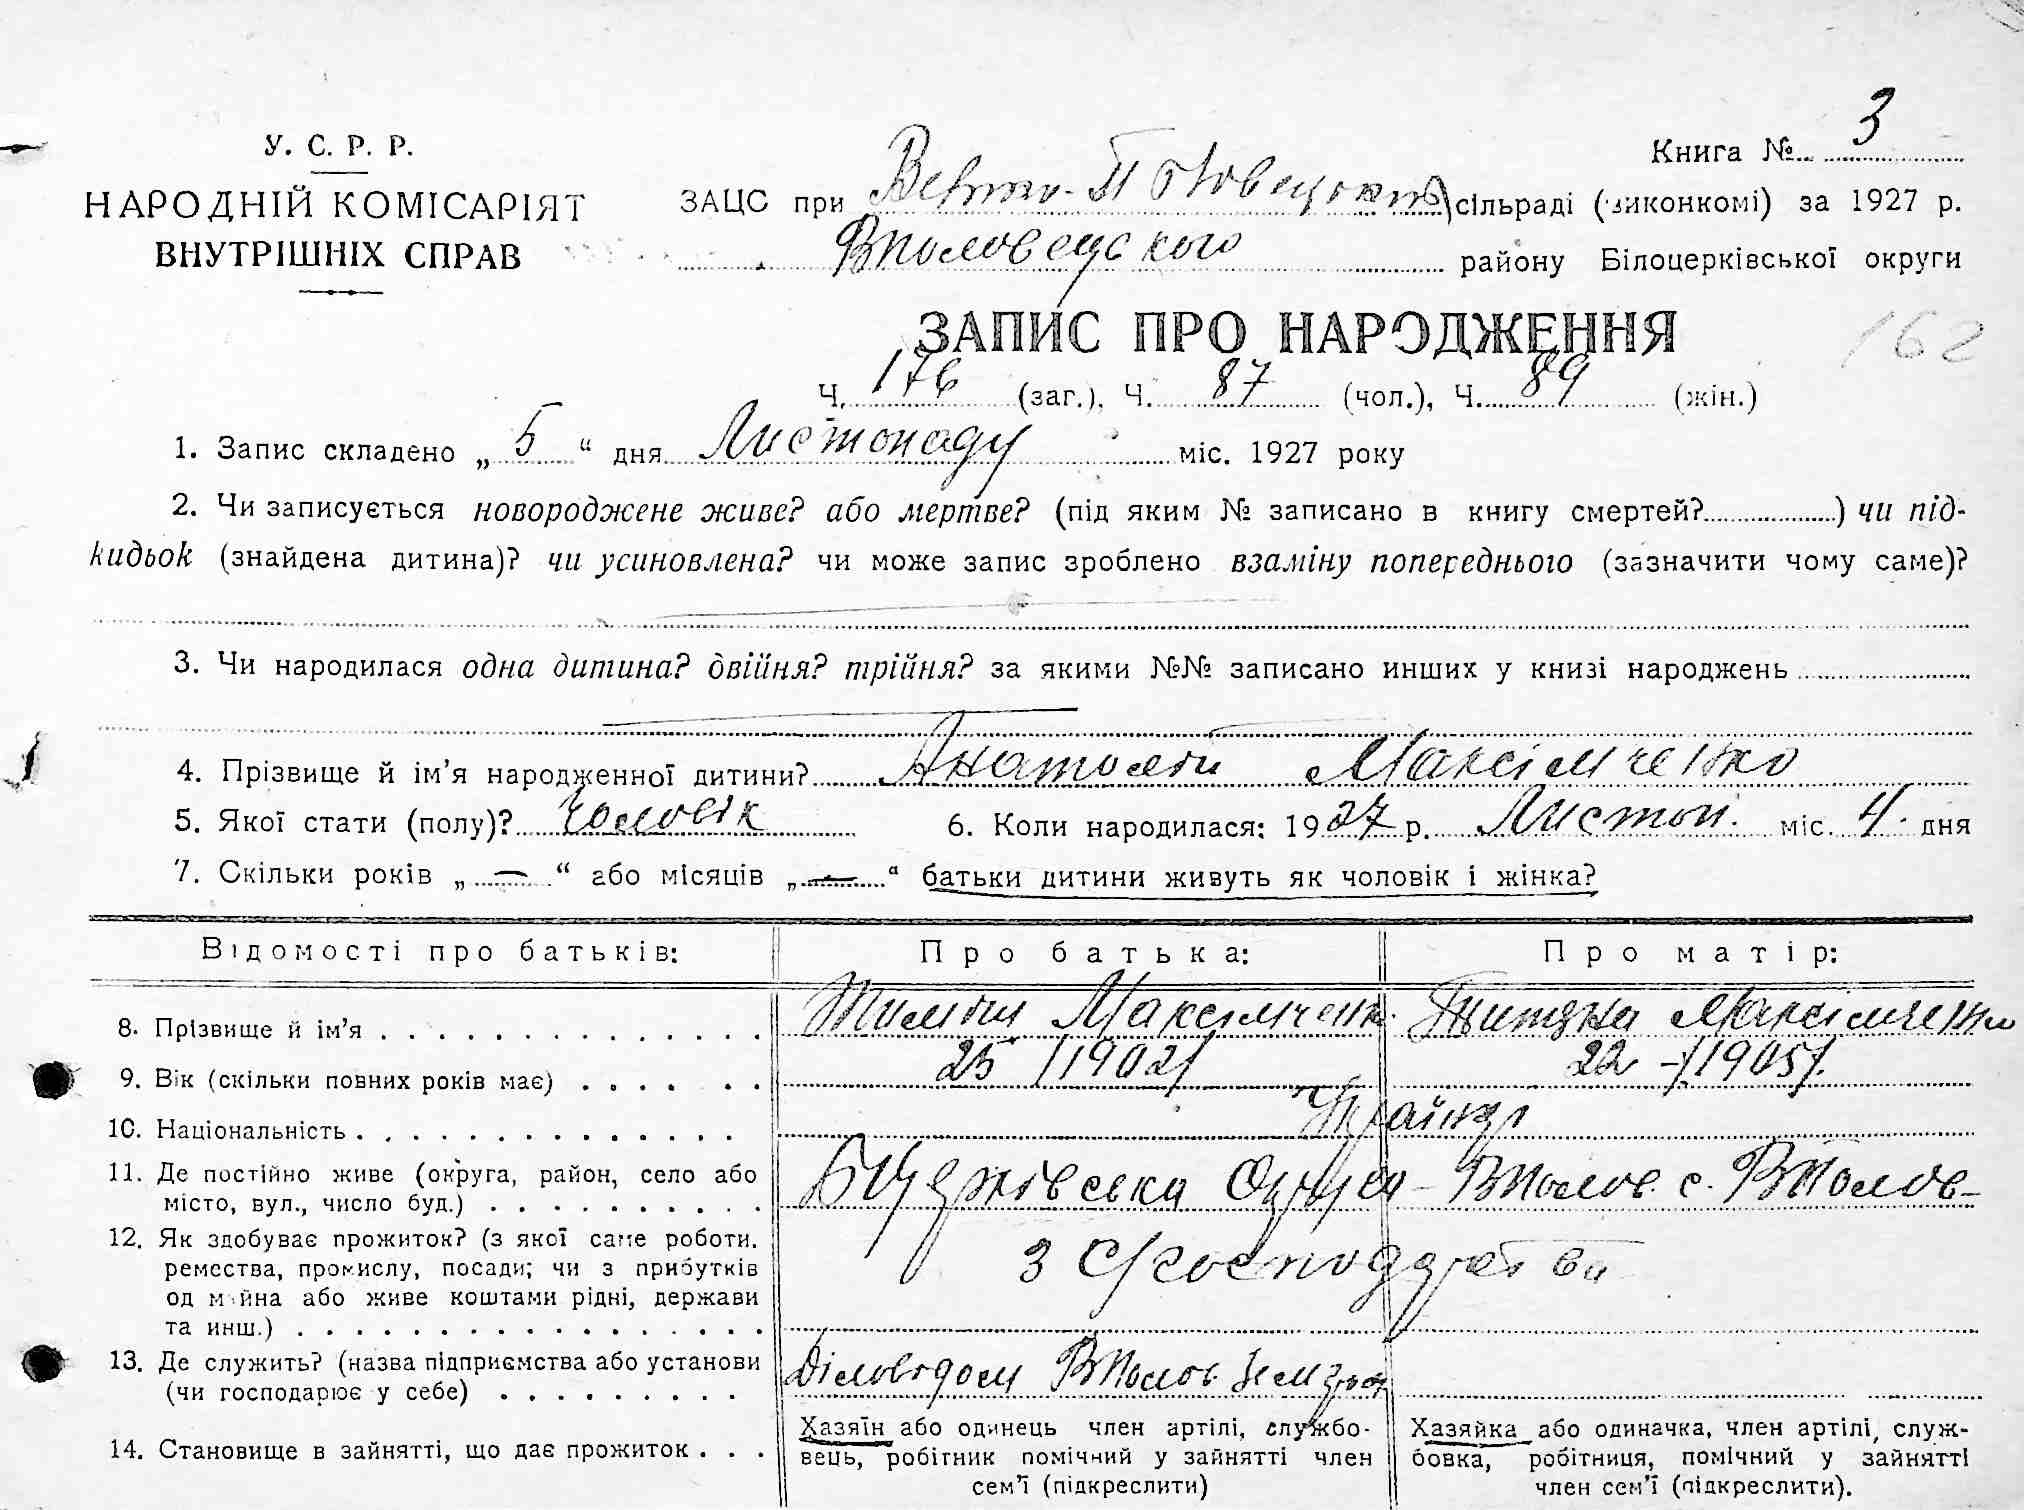 Книга № 3
У. С. Р. Р.
НАРОДНІЙ КОМІСАРІЯТ
ВНУТРІШНІХ СПРАВ
ЗАЦС при сільраді (виконкомі) за 1927 р.
Вполовецского району Білоцерківської округи
ЗАПИС ПРО НАРОДЖЕННЯ
162
Ч. 176 (заг.), Ч. 87 (чол.), Ч. 89 (жін.)
1. Запис складено „ 5 “ дня Листопаду міс. 1927 року
2. Чи записується новороджене живе? або мертве? (під яким № записано в книгу смертей?) чи під-
кидьок (знайдена дитина)? чи усиновлена? чи може запис зроблено взаміну попереднього (зазначити чому саме)?
3. Чи народилася одна дитина? двійня? трійня? за якими №№ записано инших у книзі народжень
4. Прізвище й ім’я народженної дитини? Анатолій Максімченко
5. Якої стати (полу)? Чоловік 6. Коли народилася: 1927 р. Листоп. міс. 4. дня
7. Скільки років „ — “ або місяців „ — “ батьки дитини живуть як чоловік і жінка?
Відомості про батьків: Про батька: Про матір:
8. Прізвище й ім’я Максімченк. Максімченко
9. Вік (скільки повних років має) 25 /1902/ 22 - /1905/.
10. Національність Українці
11. Де постійно живе (округа, район, село або
місто, вул., число буд.) БЦерківська Округа - ВПолов. с. ВПолов-
12. Як здобуває прожиток? (з якої саме роботи,
ремества, промислу, посади; чи з прибутків
од майна або живе коштами рідні, держави
та инш.) З С/господарства
13. Де служить? (назва підприємства або установи
(чи господарює у себе) Діловодом ВПолов
14. Становище в зайнятті, що дає прожиток
Хазяїн або одинець член артілі, службо-
вець, робітник помічний у зайнятті член
сем’ї (підкреслити)
Хазяйка або одиначка, член артілі, служ-
бовка, робітниця, помічний у зайнятті
член сем’ї (підкреслити).